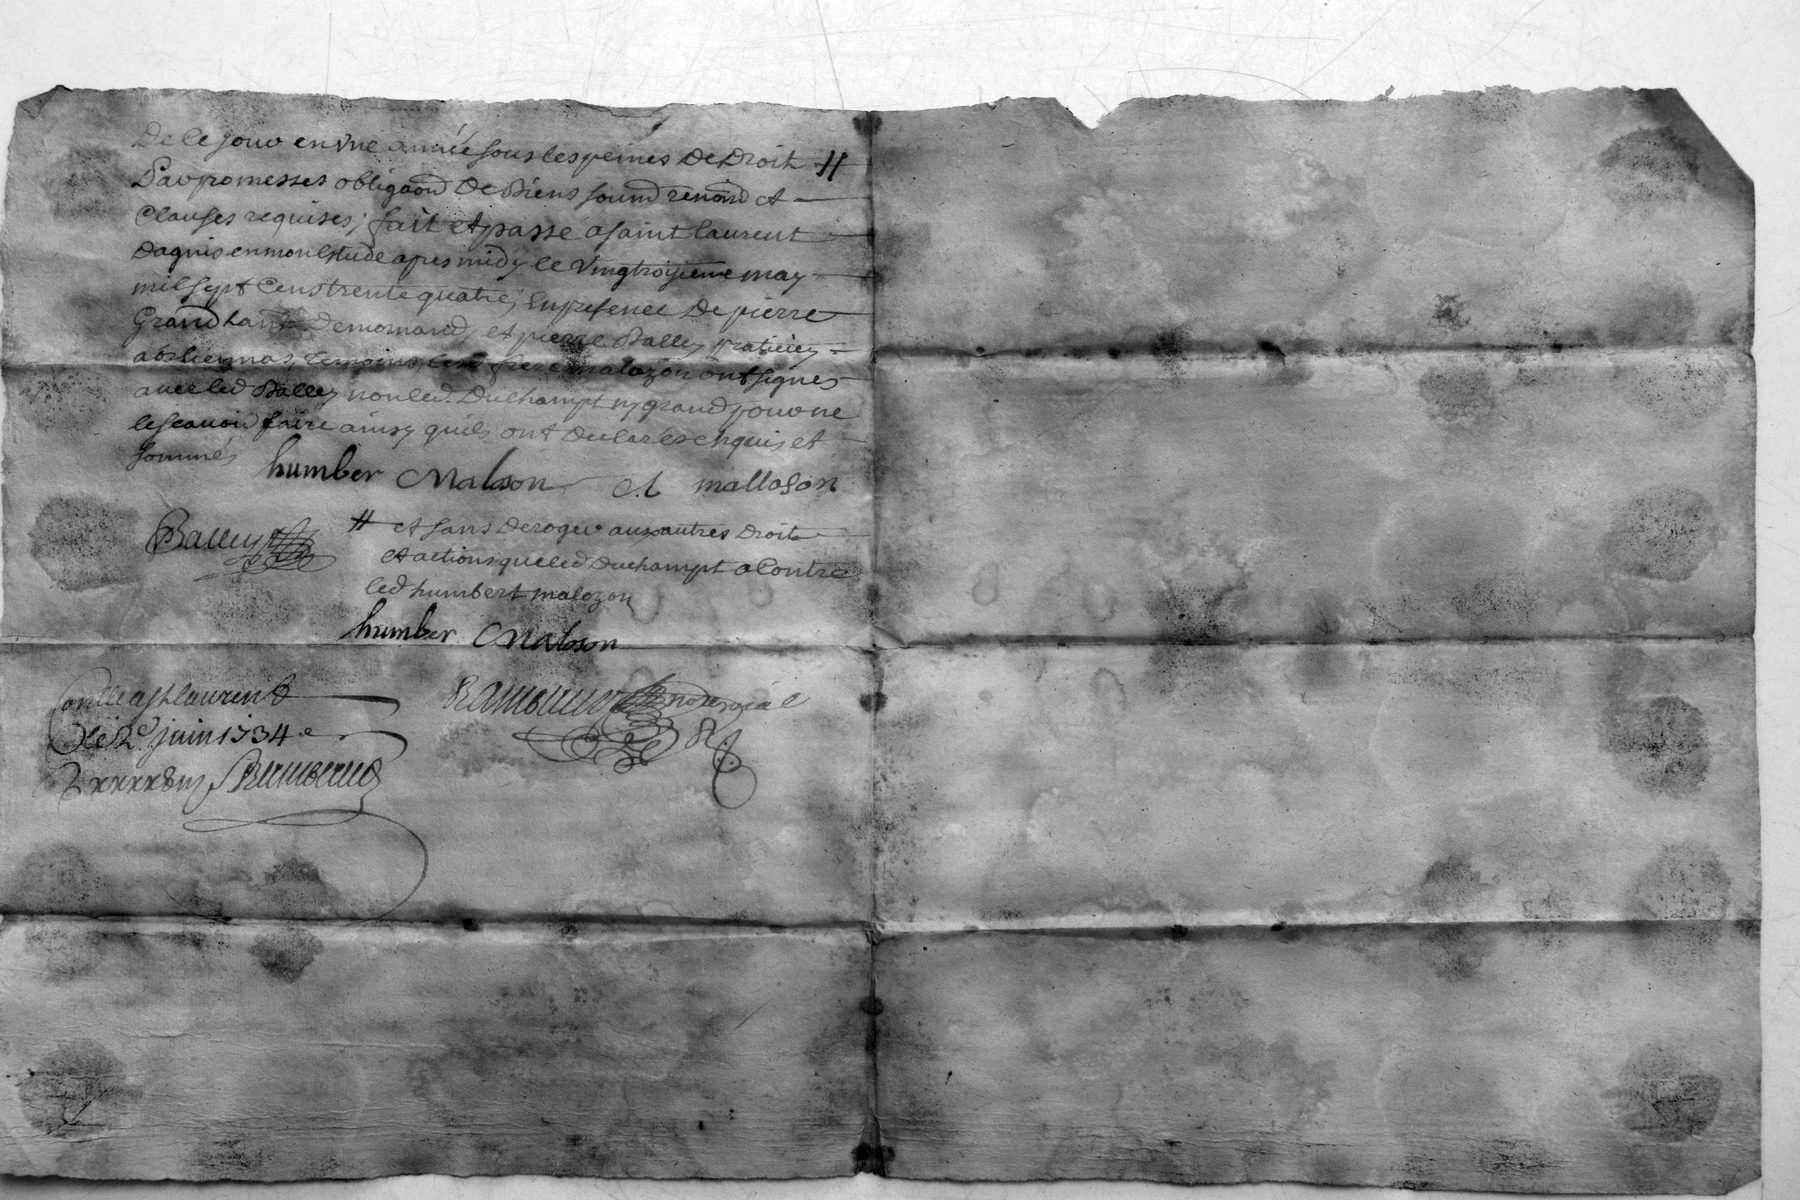 De ce jour en une année sous les peines De Droit //
Par promesses obligaond De Biens soumd renond et
Clauses requises; fait et passé a saint laurent
Daguis en mon Estude apres midy le Vingtroisieme may
mil sept Cens trente quatre, En presence De pierre
Grand Demornand, et pierre Balley praticien
temoins, lesd frere malozon ont signés
avec led Balley non led. Duchampt ny grand jour ne
le scavoir faire ainsy quils ont declarés enquis et
sommés
humber Maloson et mallason
Balley
// et sans Deroger aux autres Droit
et actions que led Duchampt a Contre
led humbert malozon
humber Maloson
Conllé a st laurent
le 2e juin 1734